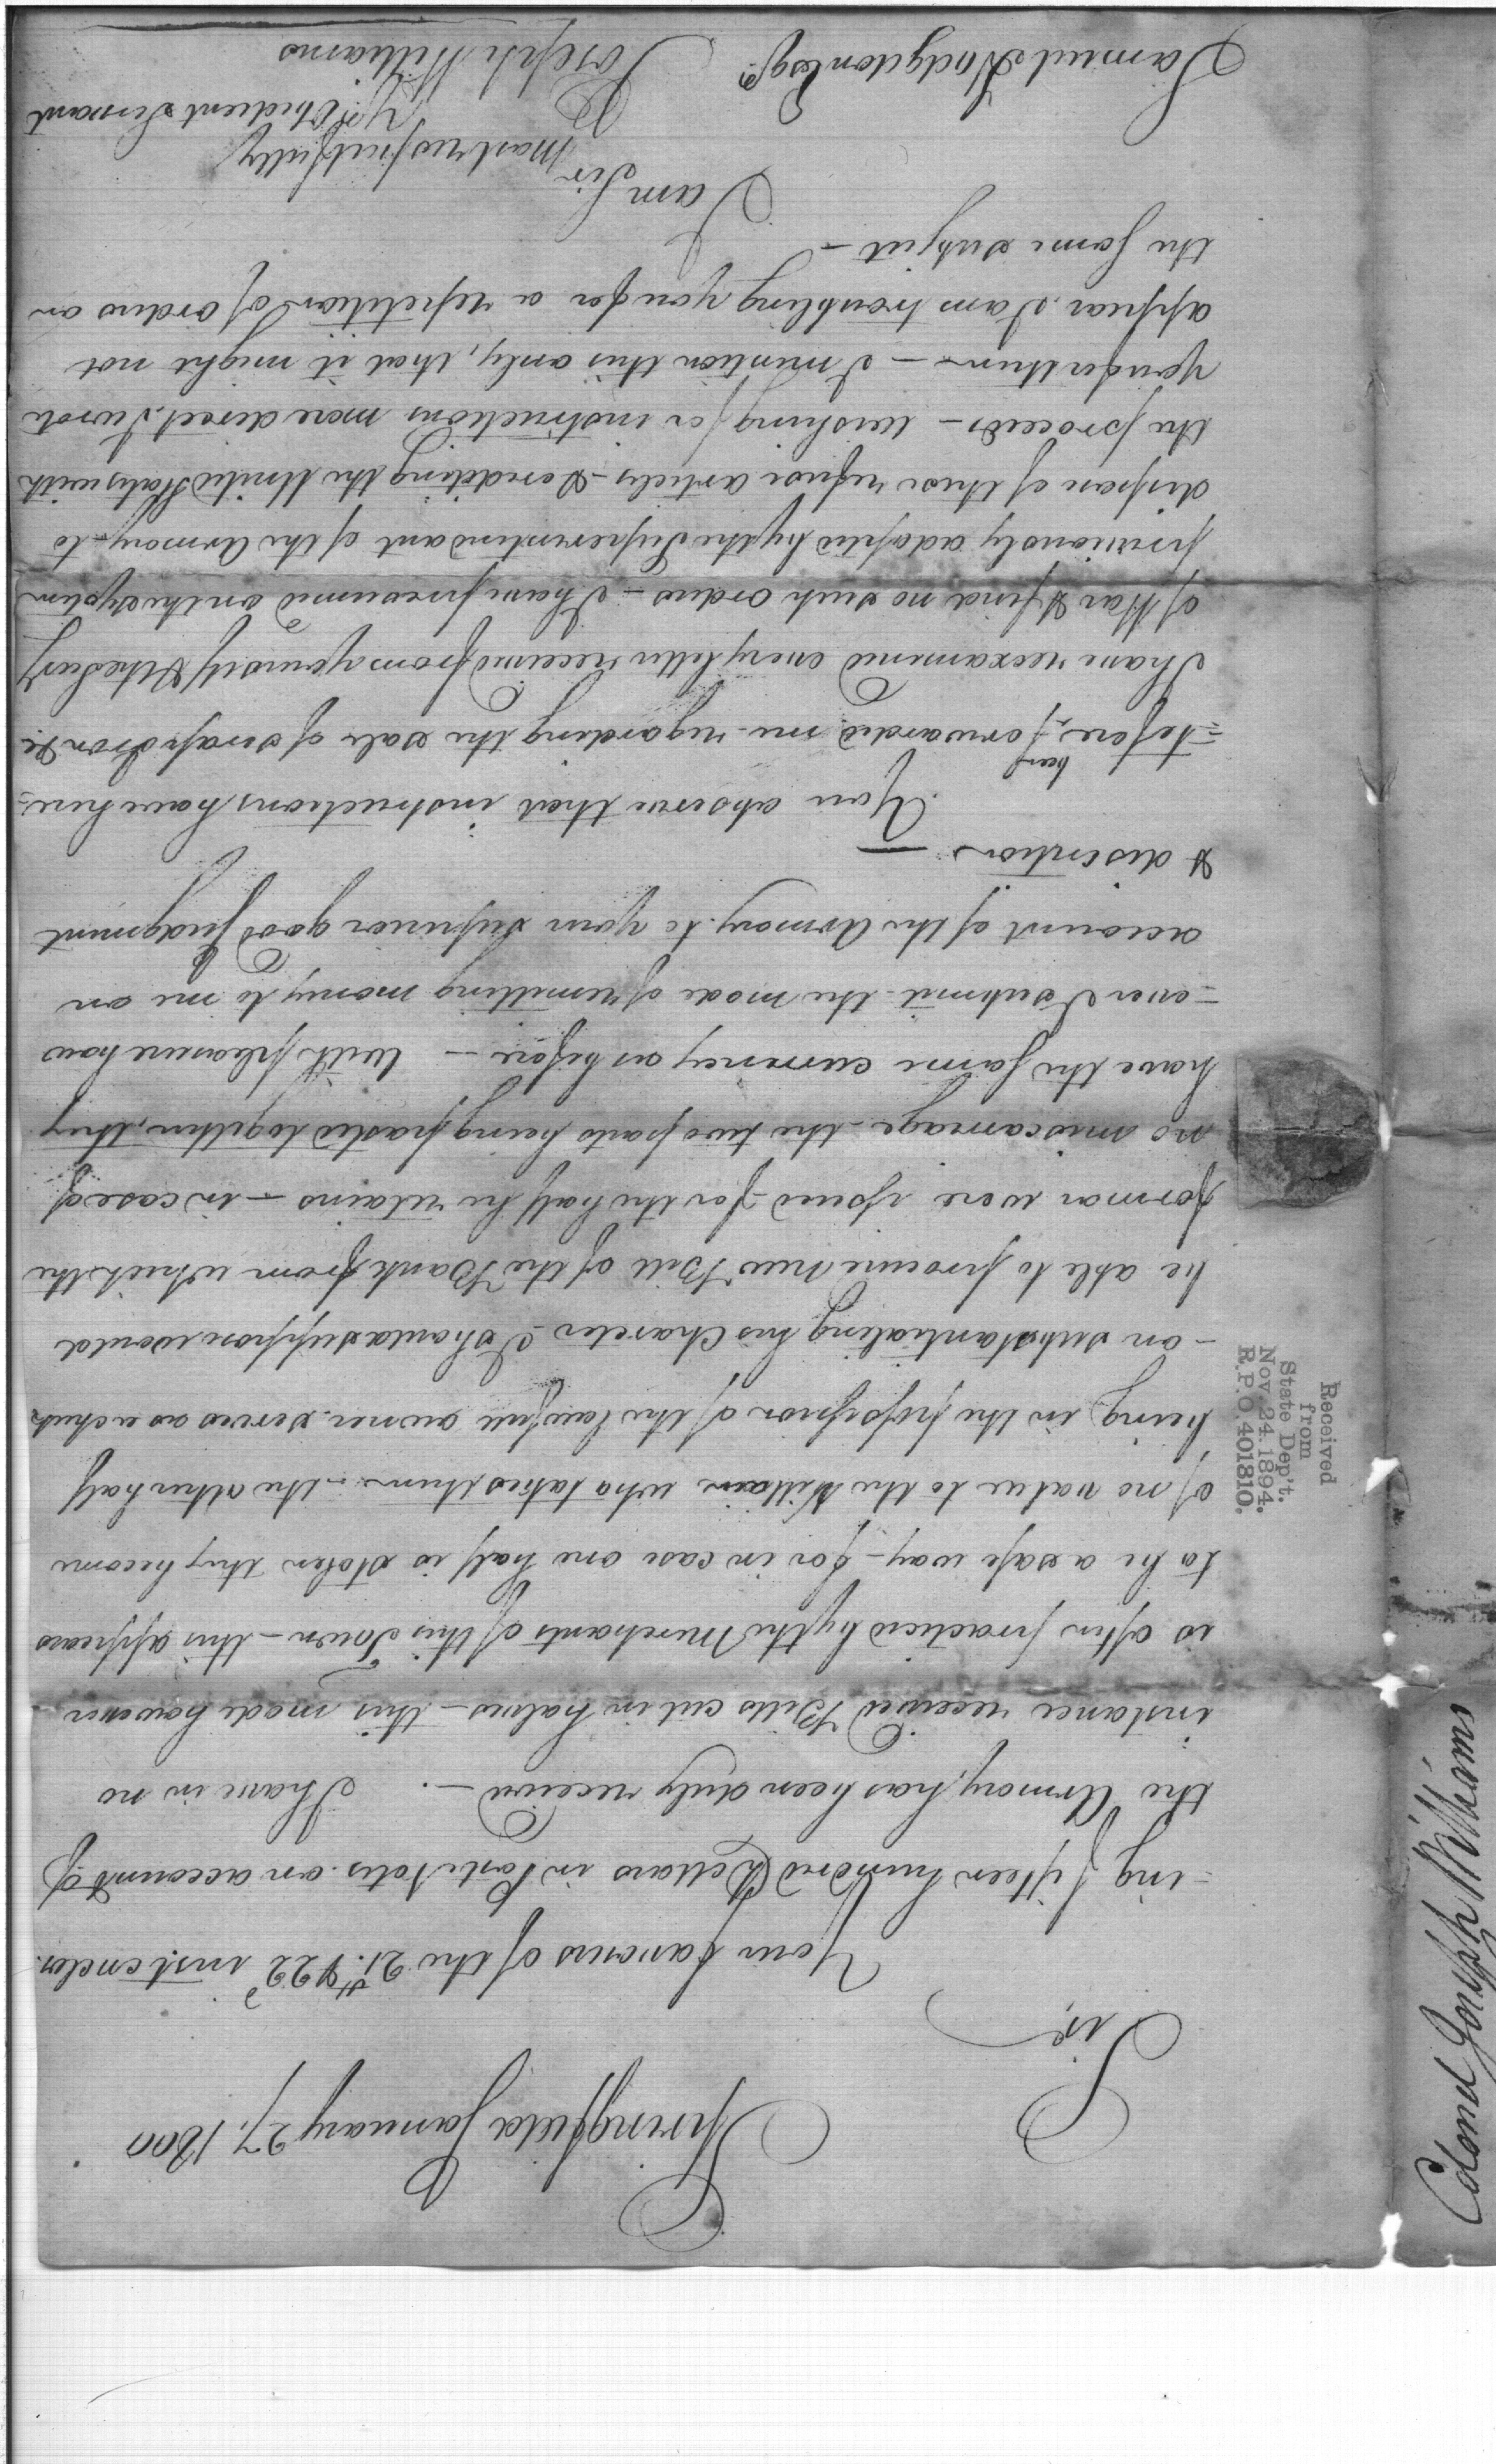 Springfield January 27. 1800
Sir,
Your favours of the 21st. & 22d instenclos
-ing fifteen hundred Dollars in Post Notes on account of
the Armory, has been duly received —. I have in no
instance received Bills cut in halves — this mode however
is often practiced by the Merchants of this Town — this appears
to be a safe way — for in case one half is stolen they become
of no value to the Villain who takes them — the other half
being in the possession of the lawfull owner serves as a check
- on substantiating his Charecter I should suppose would
be able to procure new Bill of the Bank from which the
former were issued for the half he retains — in case of
no miscarriage — the two parts being pasted together, they
have the same currency as before — With pleasure how
-ever I submit the mode of remitting money to me on
account of the Armory to your superior good Judgment
& discretion —
You observe that instructions have here-
=tofore, been forwarded me regarding the sale of scrap Iron &c
I have reexamined every letter received from yourself & the Secy
of War & find no such orders — I have presumed on the system
previously adopted by the Superintendant of the Armory — to
dispose of these refuse articles — & crediting the United States with
the proceeds — wishing for instructions more direct, I wrote
you for them — I mention this only, that it might not
appear I am troubling you for a repetition of orders on
the same subject —
I am Sir
most respectfully
Yr Obedient Servant
Joseph Williams
Samuel Hodgdon Esqr.
Received
from
State Dep't.
Nov. 24. 1894.
R. P. O. 401810.
Colonel Joseph Williams